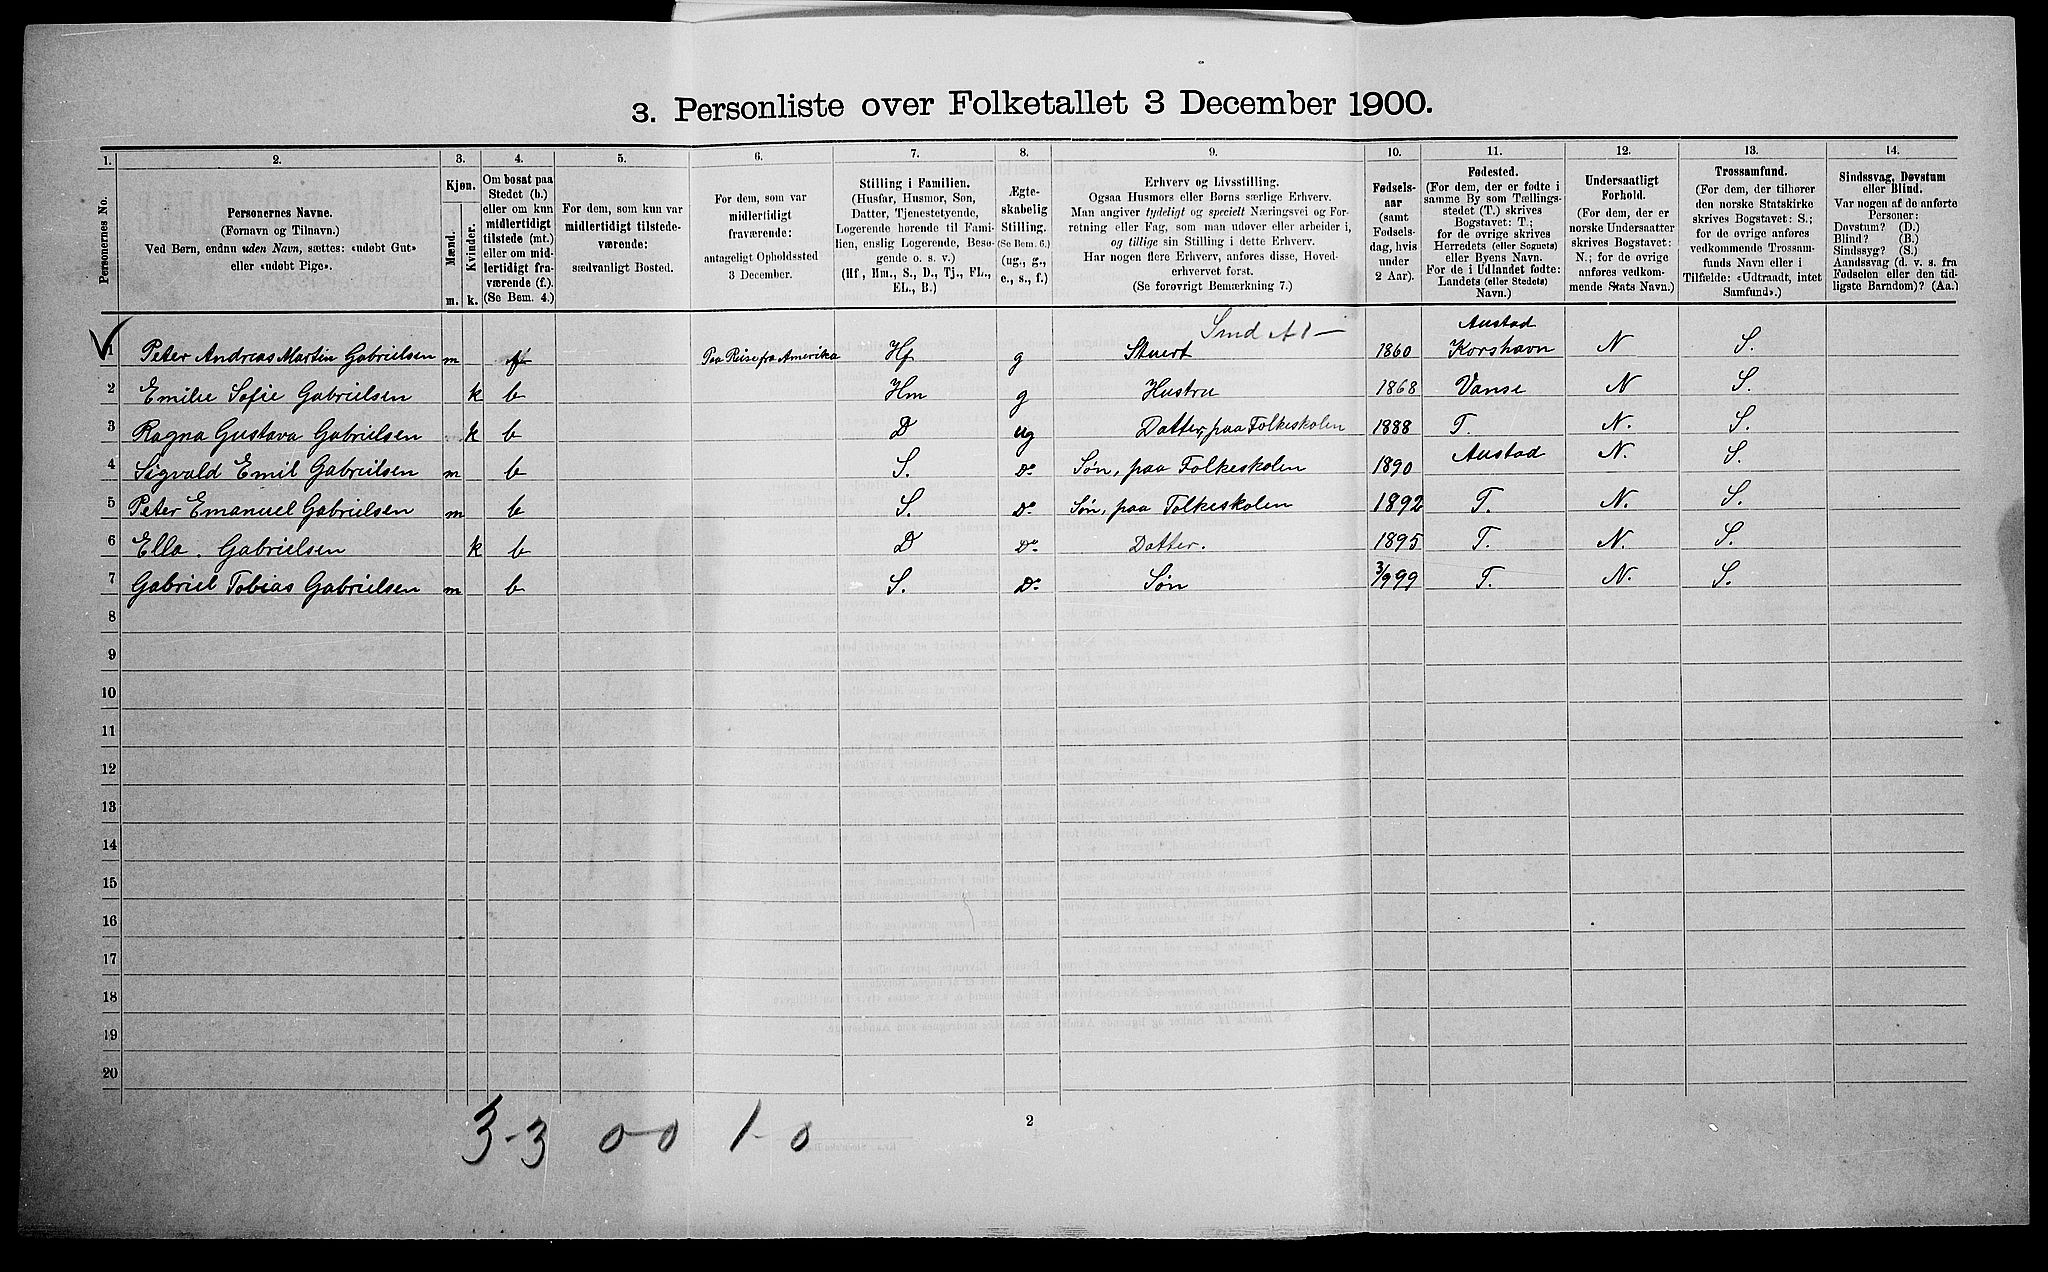 3. Personliste over Folketallet 3 December 1900.
1. 2. 3. 4. 5. 6. 7. 8. 9. 10. 11. 12. 13. 14.
Personernes No.
Personernes Navne.
(Fornavn og Tilnavn.)
Ved Børn, endnu uden Navn, sættes: «udøbt Gut»
eller «udøbt Pige».
Kjøn.
Mænd.
Kvinder.
m. k.
Om bosat paa
Stedet (b.)
eller om kun
midlertidigt
tilstede (mt.)
eller om mid-
lertidigt fra-
værende (f.).
(Se Bem. 4.)
For dem, som kun var
midlertidigt tilstede-
værende:
sædvanligt Bosted.
For dem, som var
midlertidigt
fraværende:
antageligt Opholdssted
3 December.
Stilling i Familien.
(Husfar, Husmor, Søn,
Datter, Tjenestetyende,
Logerende hørende til Fami-
lien, enslig Logerende, Besø-
gende o. s. v.)
(Hf, Hm., S., D., Tj., FL.,
EL., B.)
Ægte-
skabelig
Stilling.
(Se Bem. 6.)
(ug., g.,
e., s., f.)
Erhverv og Livsstilling.
Ogsaa Husmors eller Børns særlige Erhverv.
Man angiver tydeligt og specielt Næringsvei og For-
retning eller Fag, som man udøver eller arbeider i,
og tillige sin Stilling i dette Erhverv.
Har nogen flere Erhverv, anføres disse, Hoved-
erhvervet først.
(Se forøvrigt Bemærkning 7.)
Fødsels-
aar
(samt
Fødsels-
dag, hvis
under
2 Aar).
Fødested.
(For dem, der er fødte i
samme By som Tællings-
stedet (T.) skrives
Bogstavet: T.;
for de øvrige skrives
Herredets (eller Sognets)
eller Byens Navn.
For de i Udlandet fødte:
Landets (eller Stedets)
Navn.)
Undersaatligt
Forhold.
(For dem, der er
norske Undersaatter
skrives Bogstavet:
N.; for de øvrige
anføres vedkom-
mende Stats Navn.)
Trossamfund.
(For dem, der tilhører
den norske Statskirke
skrives Bogstavet: S.;
for de øvrige anføres
vedkommende Trossam-
funds Navn eller i
Tilfælde: «Udtraadt, intet
Samfund».)
Sindssvag, Døvstum
eller Blind.
Var nogen af de anførte
Personer:
Døvstum? (D.)
Blind? (B.)
Sindssyg? (S.)
Aandssvag (d. v. s. fra
Fødselen eller den tid-
ligste Barndom)? (Aa.)
Austad
1 Peter Andreas Martin Gabrielsen m f Paa Reise fra Amerika Hf g Stuert 1860 Korshavn N S.
2 Emilie Sofie Gabrielsen k b Hm g Hustru 1868 Vanse N S.
3 Ragna Gustava Gabrielsen k b D ug Datter, paa Folkeskolen 1888 T. N. S.
4 Sigvald Emil Gabrielsen m b S. Do Søn, paa Folkeskolen 1890 Austad N. S.
5 Peter Emanuel Gabrielsen m b S. Do Søn, paa Folkeskolen 1892 T. N. S.
6 Ella. Gabrielsen k b D Do Datter. 1895 T. N. S.
7 Gabriel Tobias Gabrielsen m b S. Do Søn 3/9 99 T. N. S.
8
9
10
11
12
13
14
15
16
17
18
19
20
3-3 0-0 1-0
2